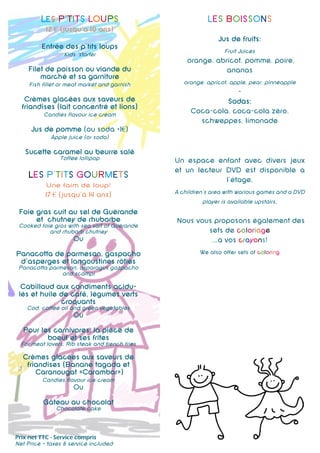 LES P'TITS LOUPS
12 € (jusqu'à 10 ans)
Entrée des p'tits loups
Kids' starter
Filet de poisson ou viande du
marché et sa garniture
Fish fillet or meat market and garnish
Crèmes glacées aux saveurs de
friandises (lait concentré et lions)
Candies flavour ice cream
Jus de pomme (ou soda +1€)
Apple juice (or soda)
Sucette caramel au beurre salé
Toffee lollipop
LES P'TITS GOURMETS
Une faim de loup!
17 € (jusqu'à 14 ans)
Foie gras cuit au sel de Guérande
et chutney de rhubarbe
Cooked foie gras with sea salt of Guérande
and rhubarb chutney
Ou
Panacotta de parmesan, gaspacho
d'asperges et langoustines rôties
Panacotta parmesan, asparagus gaspacho
and scampi
Cabillaud aux condiments acidu-
lés et huile de café, légumes verts
croquants
Cod, coffee oil and green vegetables
Ou
Pour les carnivores: la pièce de
boeuf et ses frites
For meat lovers: Rib steak and french fries
Crèmes glacées aux saveurs de
friandises (Banane tagada et
Caranougat «Carambar»)
Candies flavour ice cream
Ou
Gâteau au chocolat
Chocolate cake
Prix net TTC - Service compris
Net Price - taxes & service included
LES BOISSONS
Jus de fruits:
Fruit Juices
orange, abricot, pomme, poire,
ananas
orange, apricot, apple, pear, pinneapple
-
Sodas:
Coca-cola, coca-cola zéro,
schweppes, limonade
Un espace enfant avec divers jeux
et un lecteur DVD est disponible à
l'étage.
A children's area with various games and a DVD
player is available upstairs.
Nous vous proposons également des
sets de coloriage
...à vos crayons!
We also offer sets of coloring.